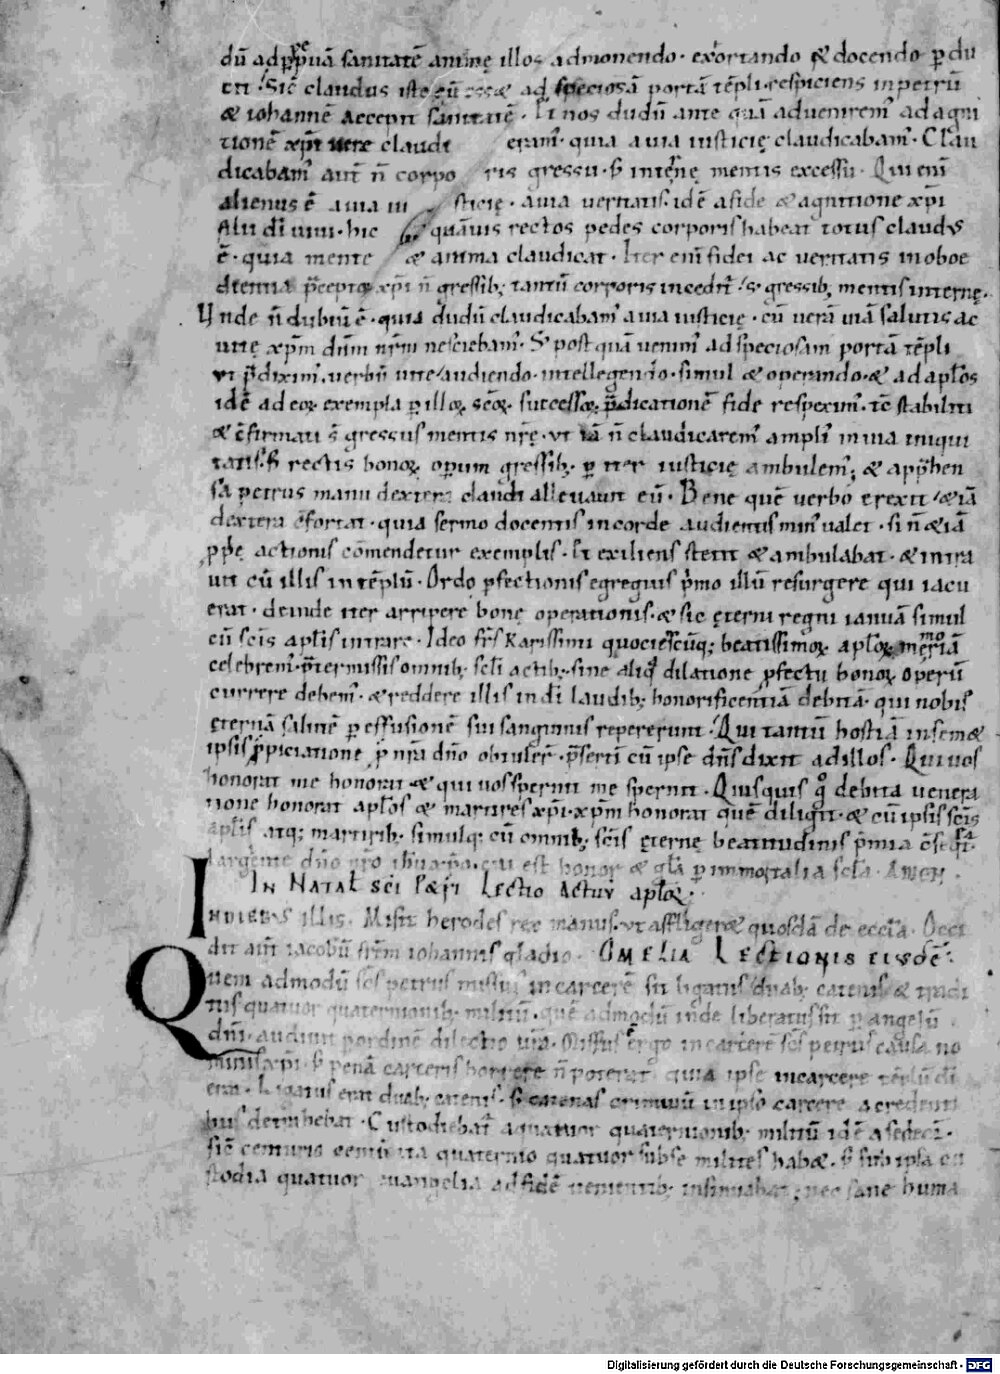 dū ad ꝑpetuā sanitatē animę illos admonendo · exortando & docendo ꝑdu
cti · Sic claudus iste cū ess& ad speciosā portā tēpli · respiciens in petrū
& iohannē accepit sanitatē · Et nos dudū ante quā adueniremꝰ ad agni
tionē xp̄i uere claudi eramꝰ · quia a uia iusticię claudicabamꝰ · Clau
dicabamꝰ aut̄ n̄ corporis gressu · s; internę mentis excessu · Qui eni͞
alienus ē a uia iusticię · a uia ueritatis · idē a fide & agnitione xp̄i
filii dī uiui · hic quāuis rectos pedes corporis habeat totus claudus
ē · quia mente & anima claudicat · Iter eni͞ fidei ac ueritatis in oboe
dientia p̄ceptoꝝ xp̄i n̄ gressib; tantū corporis incedit᷑ · s; gressib; mentis internę ·
Unde n̄ dubiū ē · quia dudū claudicabamꝰ a uia iusticię · cū uerā uiā salutis ac
uitę xp̄m dn̄m nr̄m nesciebamꝰ · S; post quā uenimꝰ ad speciosam portā tēpli
ut p̄diximꝰ · uerbū uitę audiendo · intellegendo · simul & operando · & ad apl̄os
idē ad eoꝝ exempla ꝑ illoꝝ sc̄oꝝ successoꝝ p̄dicationē fide respeximꝰ · tc̄ stabiliti
& c̄firmati s̄ gressus mentis nr̄ę · ut iā n̄ claudicaremꝰ ampliꝰ in uia iniqui
tatis · s; rectis bonoꝝ operum gressib; · ꝑ iter iusticię ambulemꝰ ; & appᷓhen
sa petrus manu dextera claudi alleuauit eū · Bene quē uerbo erexit · & iā
dextera c̄fortat · quia sermo docentis in corde audientis minꝰ ualet · si n̄ & iā
ꝓprię actionis cōmendetur exemplis · Et exiliens stetit & ambulabat · & intra
uit cū illis in tēplū · Ordo ꝑfectionis egregius p̄mo illū resurgere qui iacu
erat · deinde iter arripere bonę operationis · & sic ęterni regni ianuā simul
cū sc̄is apl̄is intrare · Ideo frs̄ karissimi quociescūq; beatissimoꝝ apl̄oꝝ memoriā
celebremꝰ · p̄termissis omnib; scl̄i actib; · sine aliq̄ dilatione ꝓfectu bonoꝝ operū
currere debemꝰ · & reddere illis in dī laudib; honorificentiā debitā · qui nobis
ęternā salutē ꝑ effusionē sui sanguinis repererunt · Qui tantū hostiā in sem&
ipsis ꝓpiciatione ꝓ nr̄a dn̄o obtuler̄ · p̄serti͞ cū ipse dn̄s dixit ad illos · Qui uos
honorat me honorat & qui uos spernit me spernit · Quisquis gͦ debita uenera
tione honorat apl̄os & martires xp̄i · xp̄m honorat quē diligit · & cū ipsis sc̄is
apl̄is atq; martirib; simulq; cū omnib; sc̄is ęternę beatitudinis p̄mia c̄seqt᷑ᷣ
largiente dn̄o nr̄o ih̄u xp̄o cui est honor & gl̄a ꝑ immortalia scl̄a · AMEN ·
IN NATAL̄ SCI PETRI LECTIO ACTUŪ apl̄oꝝ ·
IN DIEBUS illis · Misit herodes rex manus · ut afflger& quosdā de eccl̄ia · Occi
dit aut̄ iacobū fr̄em iohannis gladio · OMELIA LECTIONIS EIUSDĒ ·
Quem admodū sc̄s petrus missus in carcerē sit ligatus duab; catenis & tradi
tus quatuor quaternionib; militū · quē admodū inde liberatus sit ꝑ angelū
dn̄i · audiuit ꝑ ordinē dilectio ur̄a · Missus ergo in carcerē sc̄s petrus causa no
minis xp̄i · s; penā carceris horrere n̄ poterat quia ipse in carcere tēplū dī
erat · Ligatus erat duab; catenis · s; catenas criminū in ipso carcere a credenti
bus detrahebat · Custodiebat᷑ a quatuor quaternionib; militū idē a sedeci͞ ·
sic centurio centū ita quaternio quatuor sub se milites hab& · s; sub ipsa cu
stodia quatuor euangelia ad fidē uenientib; insinuabat ; nec sane huma